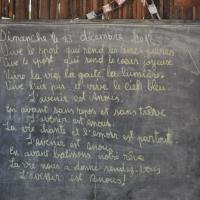 Dimanche le 23 décembre
Vive le sport qui rend les
Vive le sport qui rend le cœur joyeux
Vive la vie, la gaité, la lumière
Vive l'air pur et vive le ciel bleu
L'avenir est à nous.
En avant sans repos et sans trêve
L'avenir est à nous
La vie chante et l'espoir est partout
L'avenir est à nous
En avant bâtissons notre rêve
La vie nous a donné rendez-vous
L'avenir est à nous!